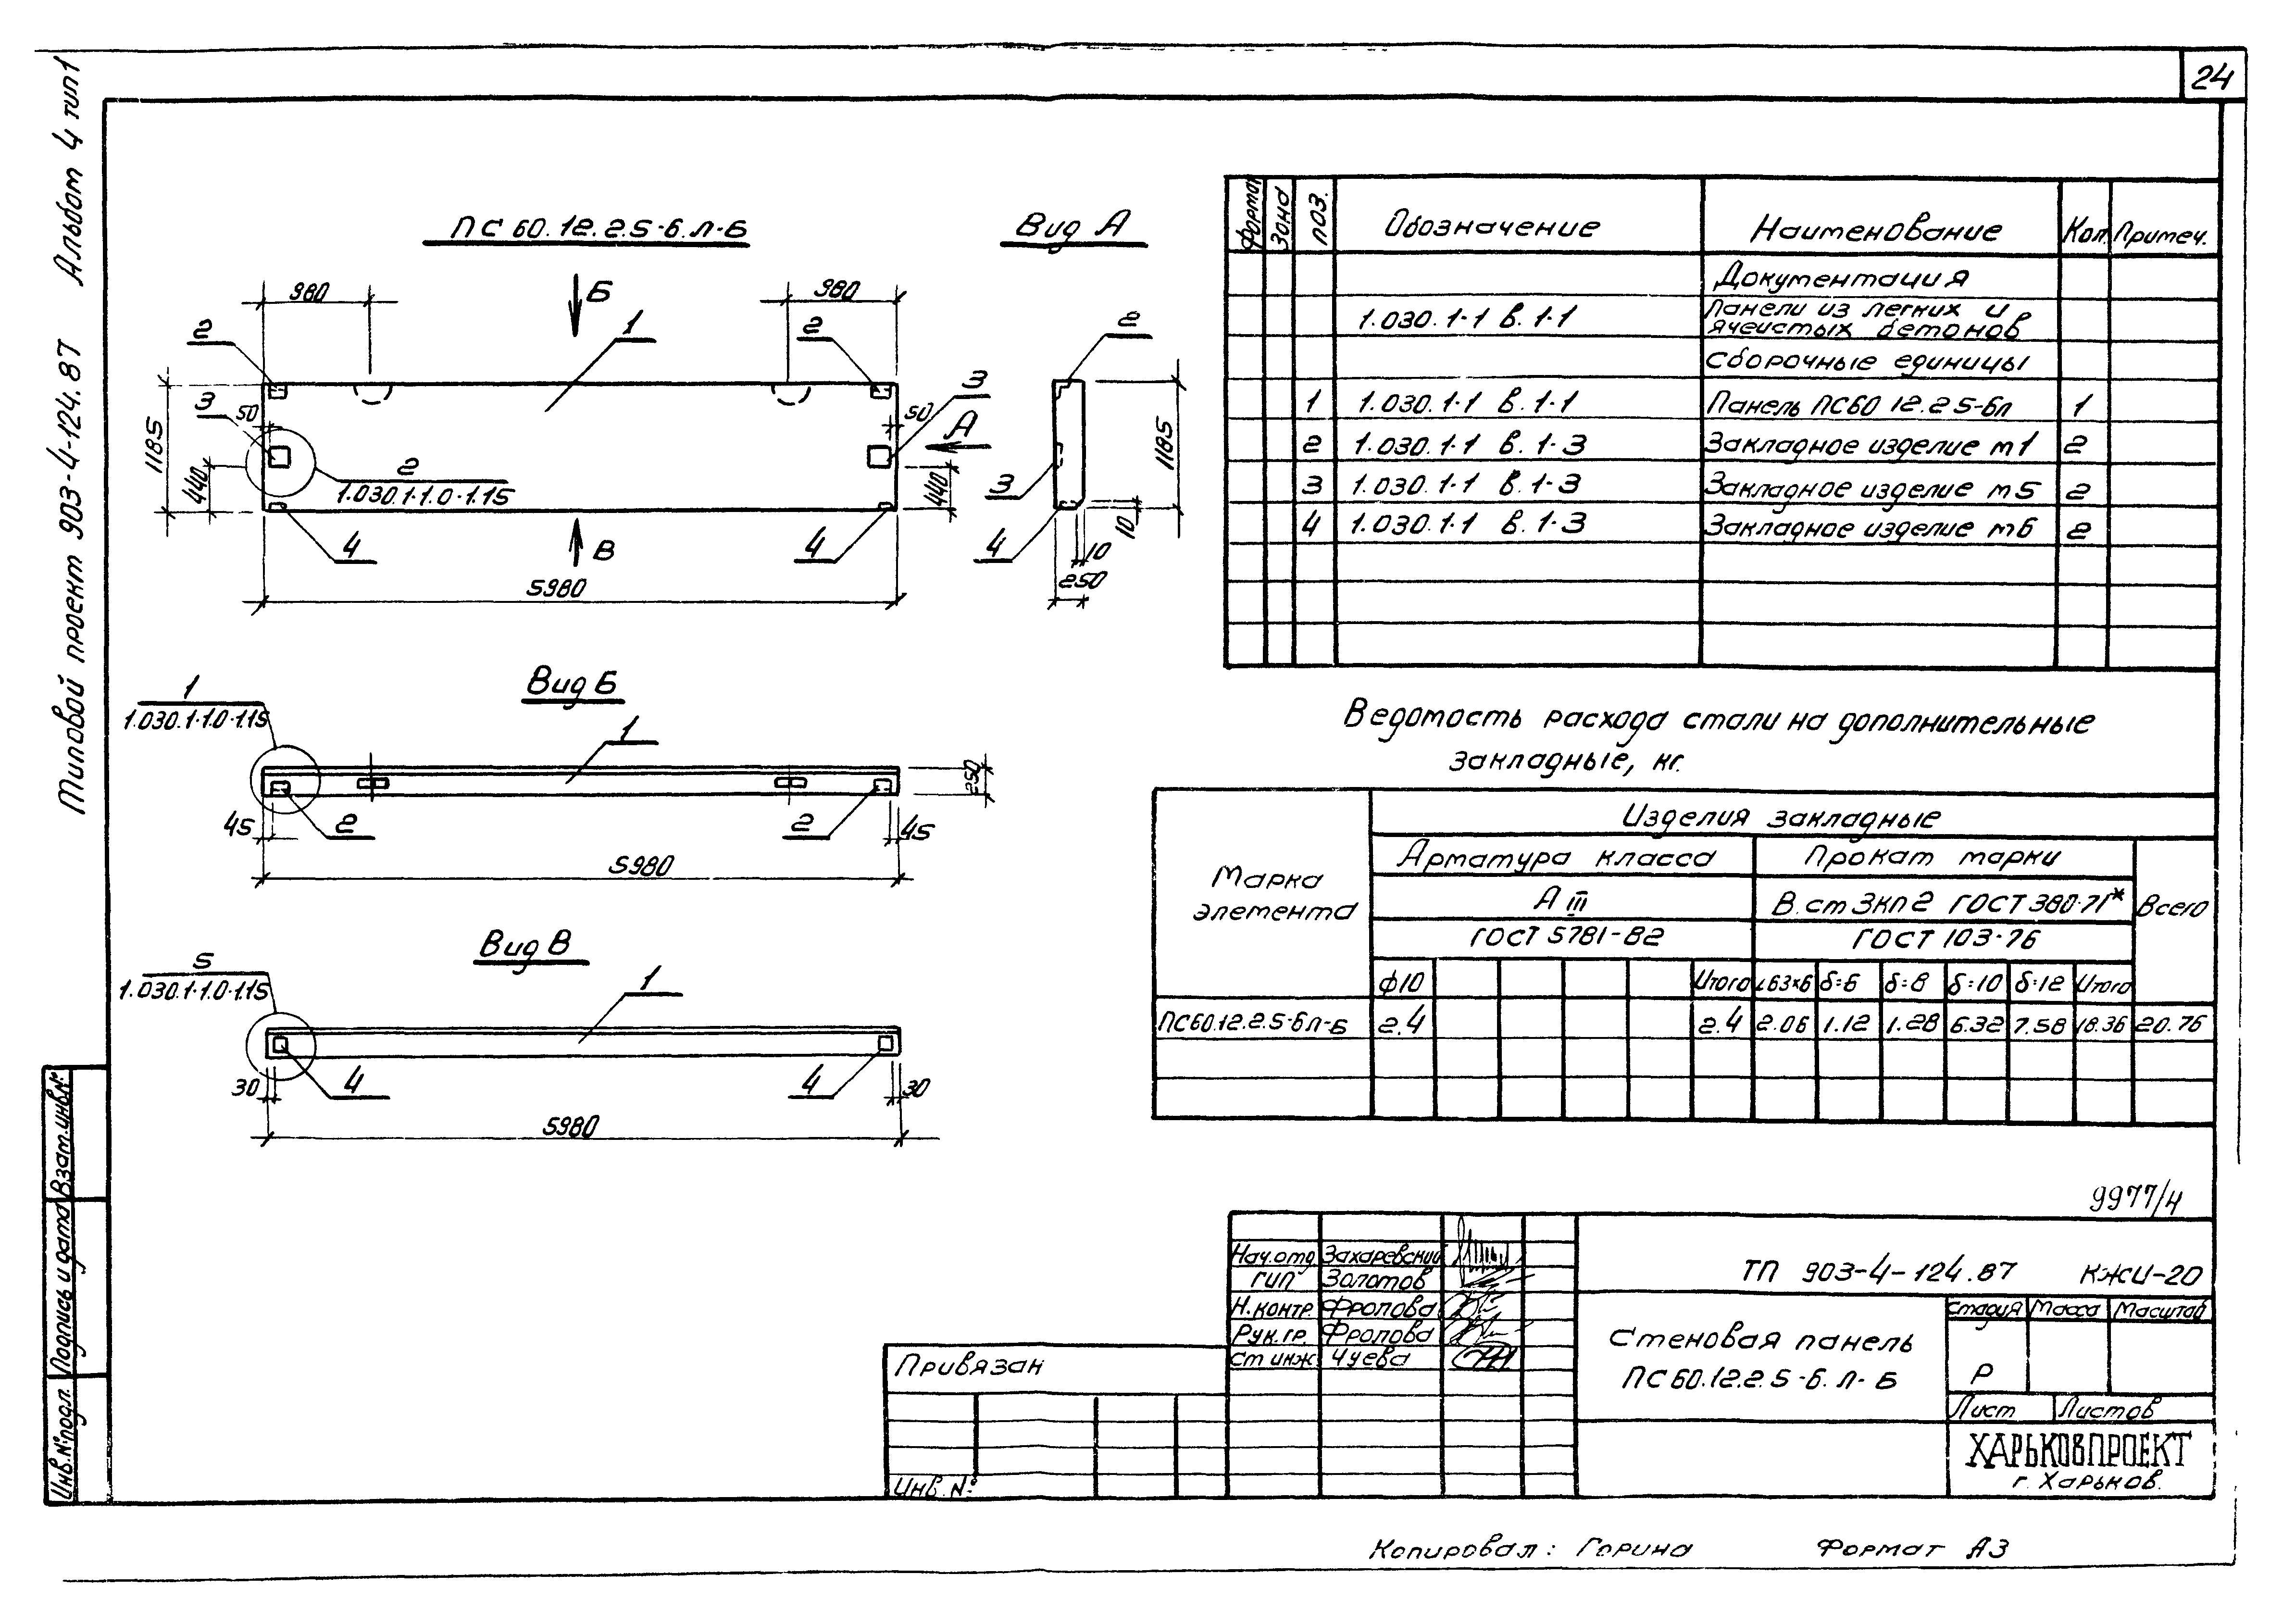 24
Типовой проект 903-4-124.87 Альбом 4 тип 1
ПС 60.12.2.5-6.Л-Б
980
980
Б
2
1
2
3
50
50
3
А
1185
440
2
1.030.1-1.0-1.15
440
4
В
4
5980
Вид А
2
3
1185
4
10
10
250
Вид Б
1
1.030.1-1.0-1.15
1
250
45
2
2
45
5980
Вид В
5
1.030.1-1.0-1.15
1
30
4
4
30
5980
Формат Зона Поз. Обозначение Наименование Кол. Примеч.
Документация
1.030.1-1 в.1-1 Панели из легких и
ячеистых бетонов
Сборочные единицы
1 1.030.1-1 в.1-1 Панель ПС60 12.2.5-6л 1
2 1.030.1-1 в.1-3 Закладное изделие м1 2
3 1.030.1-1 в.1-3 Закладное изделие м5 2
4 1.030.1-1 в.1-3 Закладное изделие м6 2
Ведомость расхода стали на дополнительные
закладные, кг.
Марка
элемента
Изделия закладные
Арматура класса Прокат марки
А III В.ст 3кп2 ГОСТ 380-71* Всего
ГОСТ 5781-82 ГОСТ 103-76
ф10 Итого L63×6 δ=6 δ=8 δ=10 δ=12 Итого
ПС60.12.2.5-6л-Б 2.4 2.4 2.06 1.12 1.28 6.32 7.58 18.36 20.76
9977/4
Нач.отд. Захаревский
ГИП Золотов
Н.контр. Фролова
Рук.гр. Фролова
Ст инж Чуева
ТП 903-4-124.87 КЖИ-20
Стеновая панель
ПС 60.12.2.5-6.Л-Б
Стадия Масса Масштаб
Р
Лист Листов
ХАРЬКОВПРОЕКТ
г. Харьков.
Привязан
Инв.№
Взам.инв.№
Подпись и дата
Инв.№ подл.
Копировал: Горина Формат А3